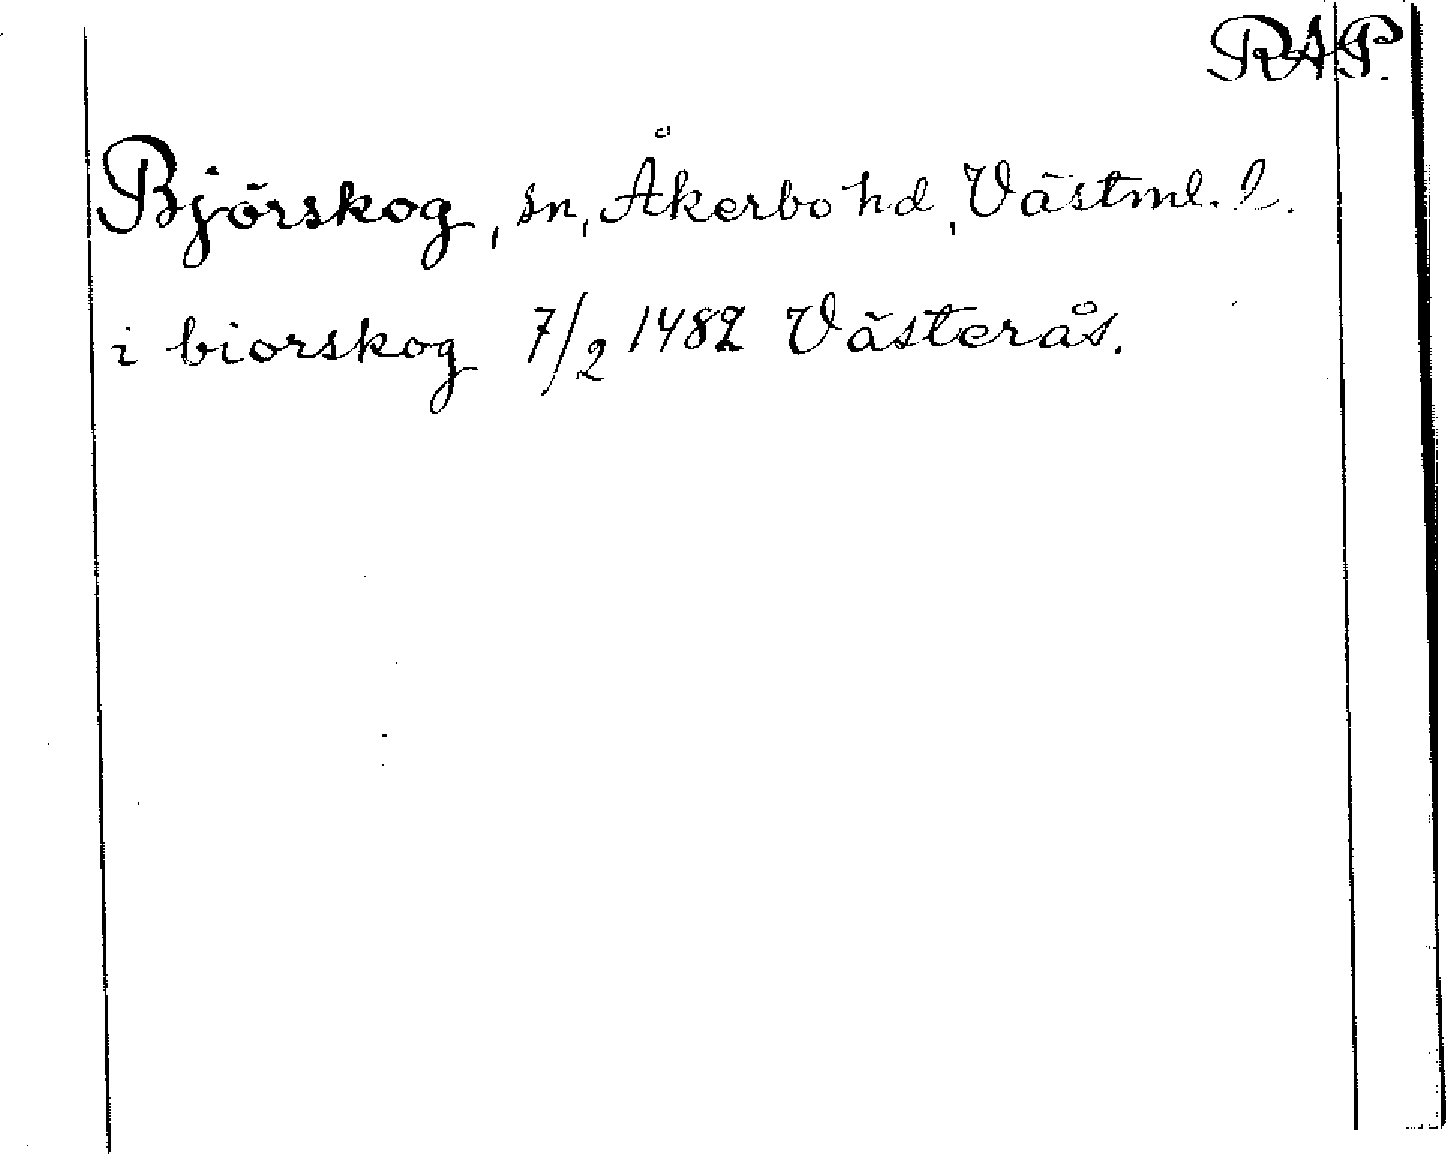 RAP.
Björskog, sn, Åkerbo hd, Västml. l.
i biorskog 7/2 1482 Västerås.